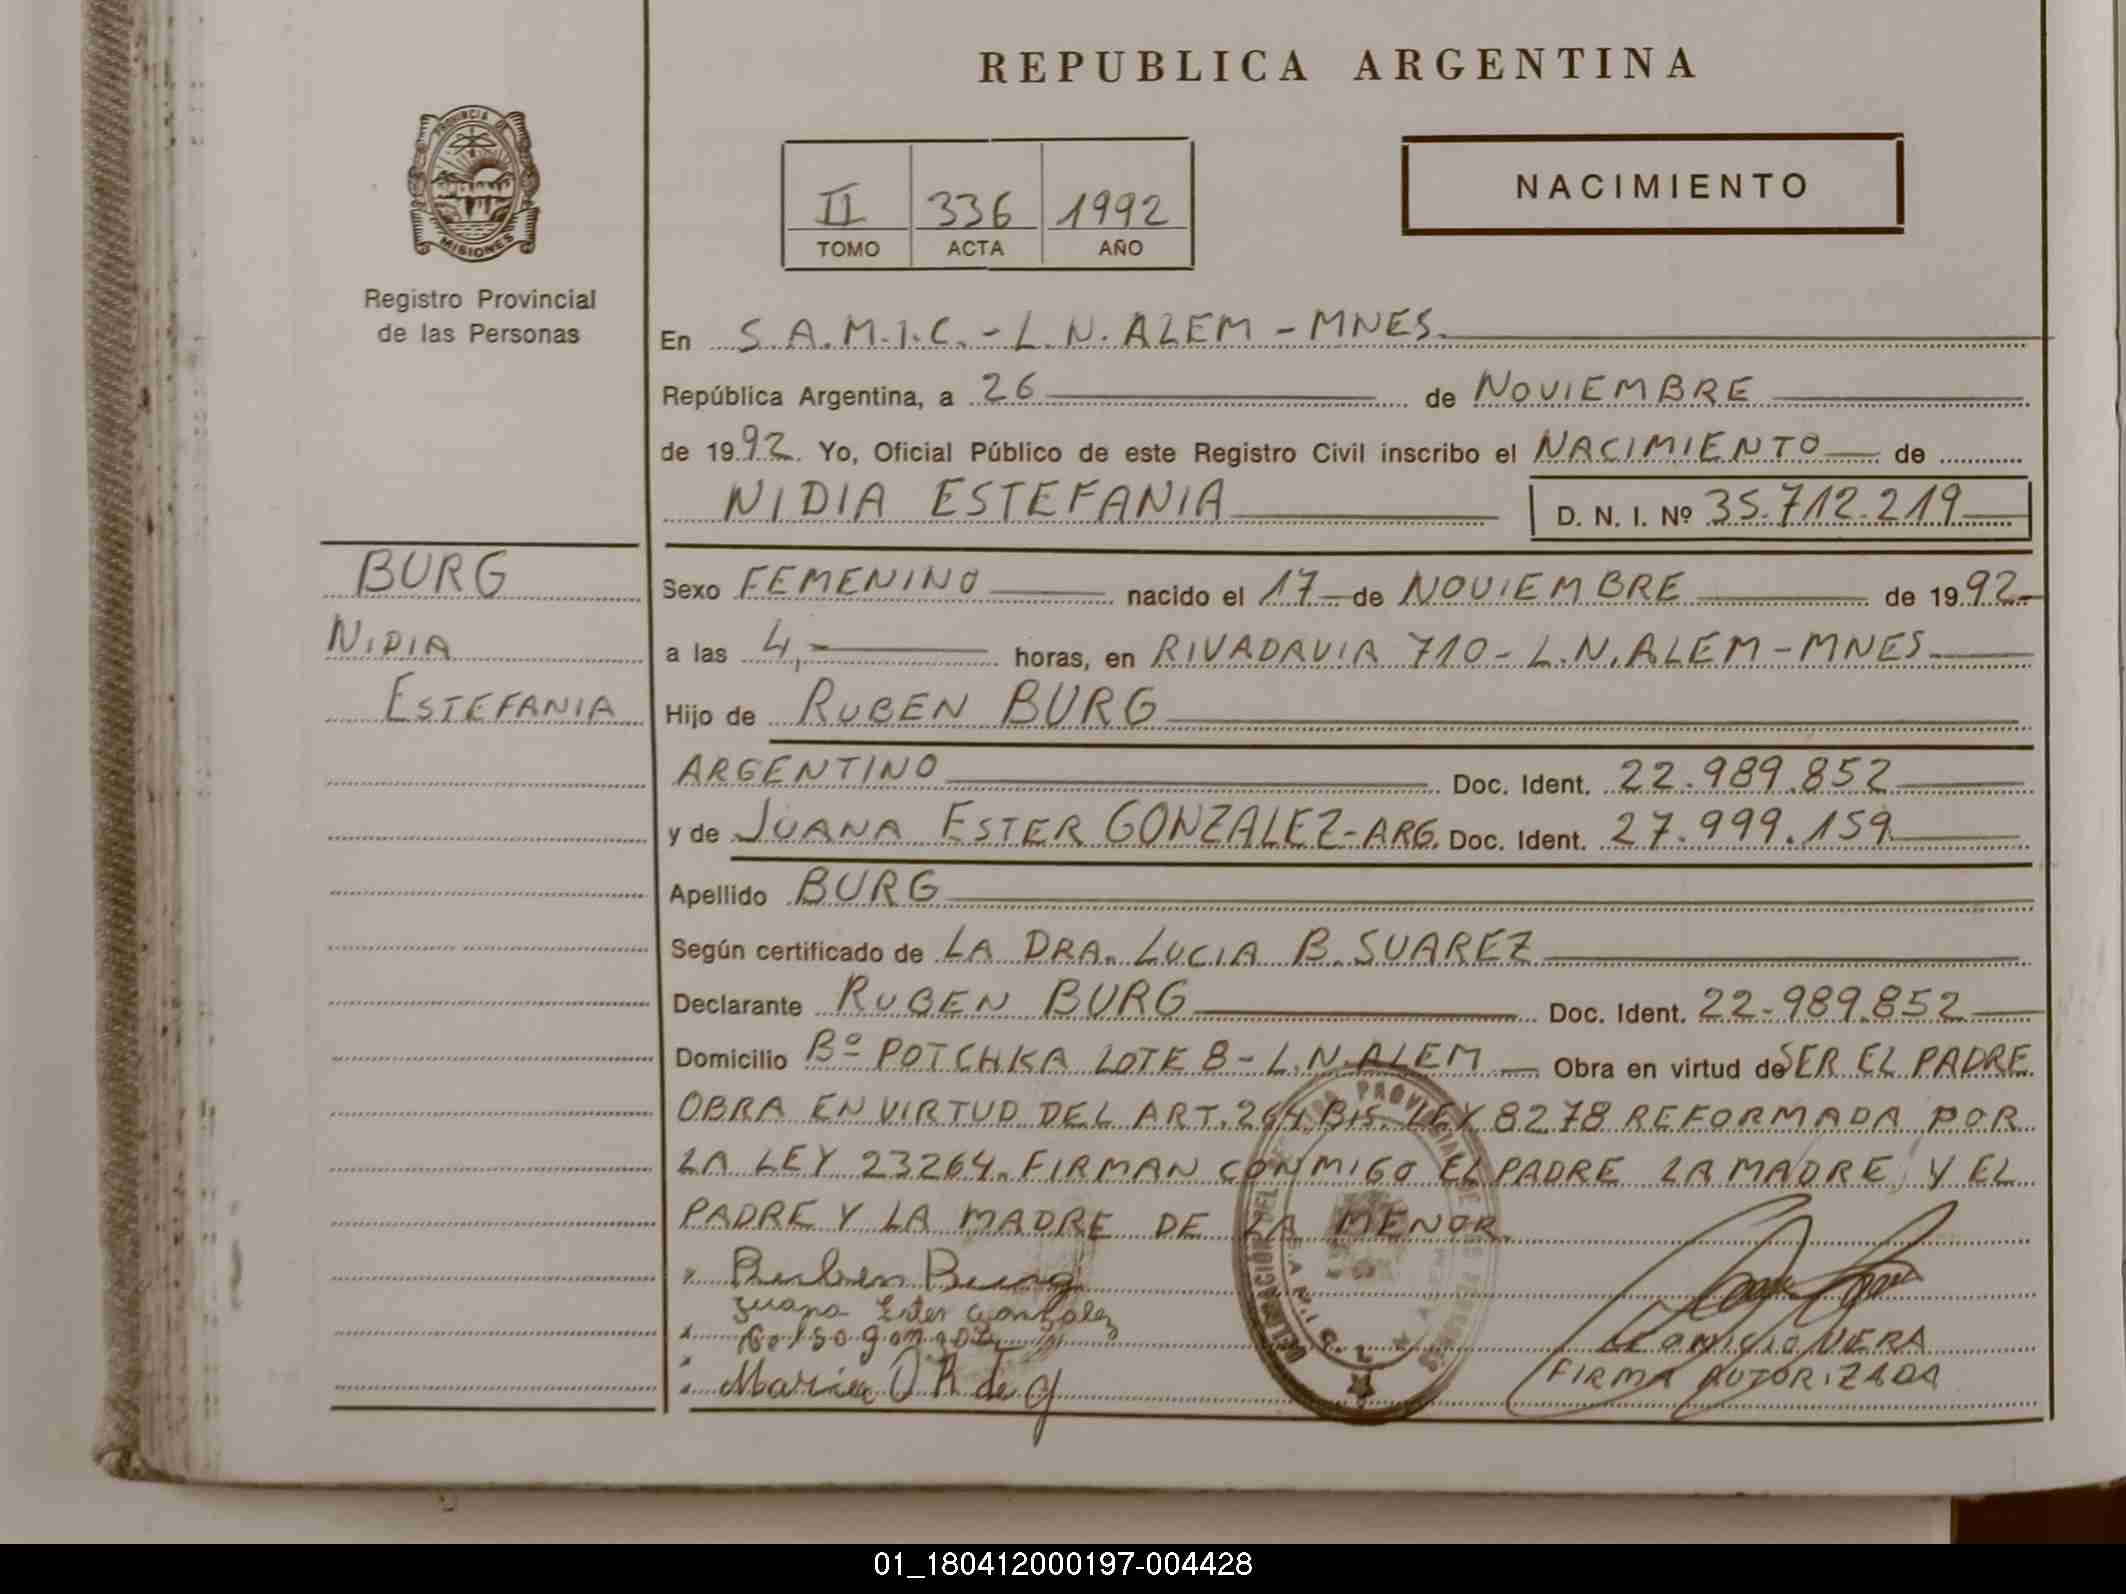 REPUBLICA ARGENTINA
PROVINCIA DE
MISIONES
Registro Provincial
de las Personas
II 336 1992
TOMO ACTA AÑO
NACIMIENTO
En S.A.M.I.C. - L.N. ALEM - MNES.
República Argentina, a 26 de NOVIEMBRE
de 1992. Yo, Oficial Público de este Registro Civil inscribo el NACIMIENTO de
NIDIA ESTEFANIA D. N. I. Nº 35.712.219
BURG
NIDIA
ESTEFANIA
Sexo FEMENINO nacido el 17 de NOVIEMBRE de 1992
a las 4,- horas, en RIVADAVIA 710 - L.N. ALEM - MNES
Hijo de RUBEN BURG
ARGENTINO Doc. Ident. 22.989.852
y de JUANA ESTER GONZALEZ - ARG. Doc. Ident. 27.999.159
Apellido BURG
Según certificado de LA DRA. LUCIA B. SUAREZ
Declarante RUBEN BURG Doc. Ident. 22-989.852
Domicilio Bº POTCHKA LOTE 8 - L.N. ALEM Obra en virtud de SER EL PADRE
OBRA EN VIRTUD DEL ART. 264 BIS. LEY 8278 REFORMADA POR
LA LEY 23264. FIRMAN CONMIGO EL PADRE LA MADRE, Y EL
PADRE Y LA MADRE DE LA MENOR.
Ruben Burg
Juana Ester Gonzalez
María de
VERA
FIRMA AUTORIZADA
01_180412000197-004428